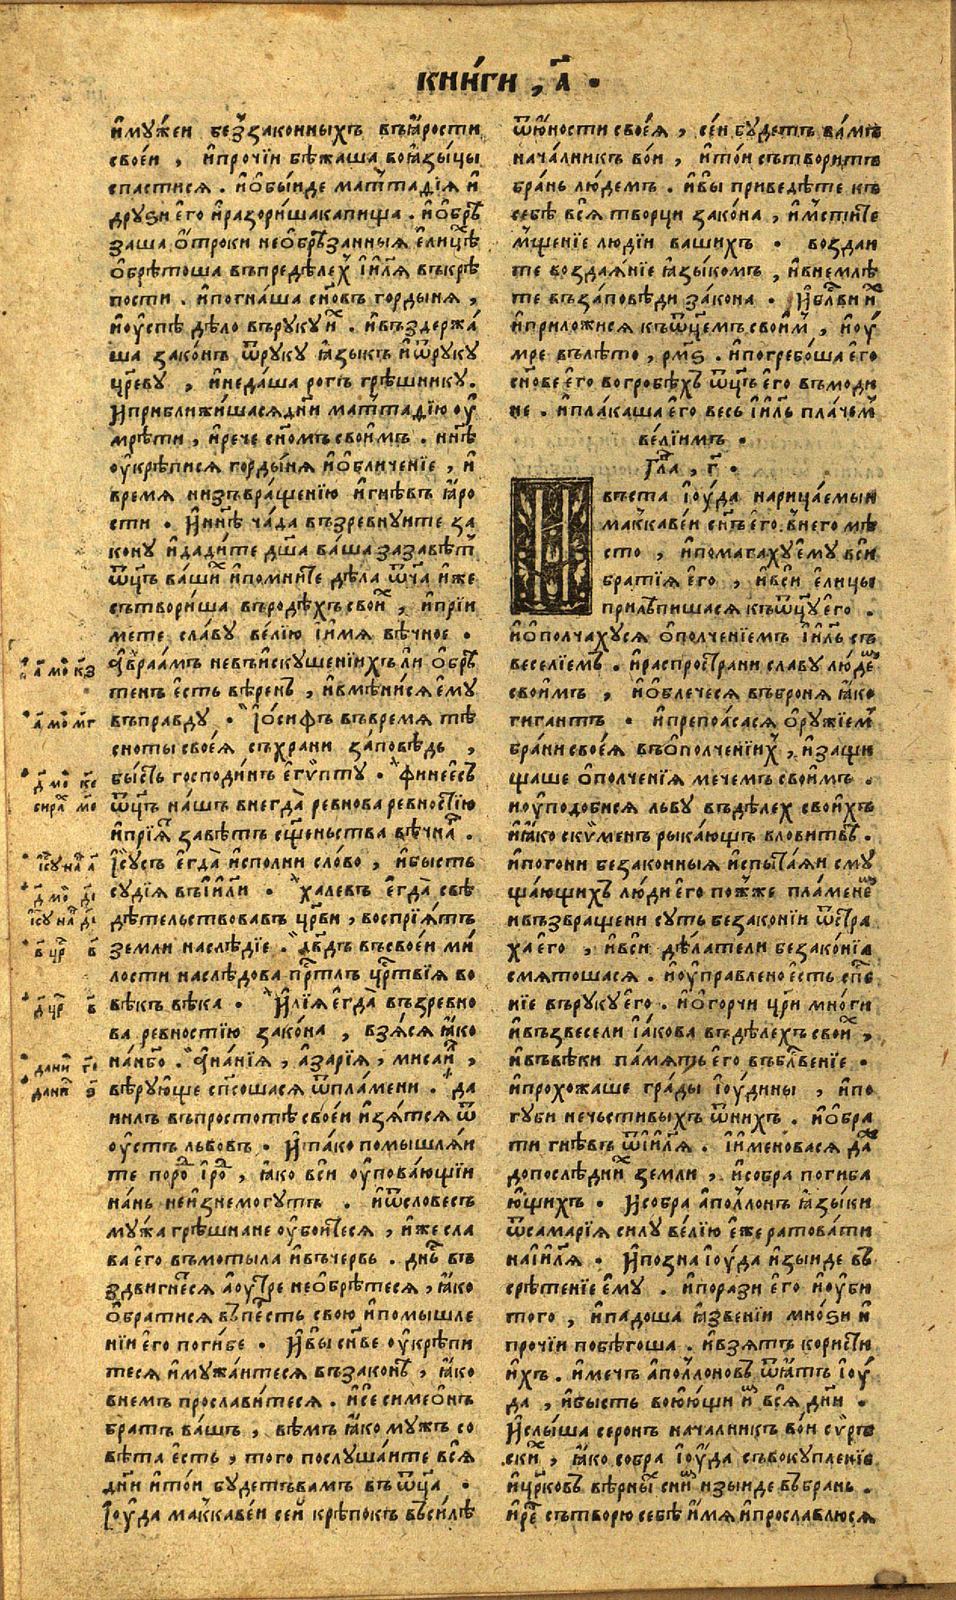 кни́ги , а҃ •
и҆му́жеи без̾законныхъ въꙗ҆́рости
свое́и , и҆про́чїи бѣжаша воꙗ҆зы́цы
спастисѧ . и҆о҆бы́иде мат̾таді́ѧ и҆
дру́ѕи е҆го и҆разори́шакапища . и҆о҆брѣ́
заша о҆́троки нео҆брѣзанныѧ є҆ли́цѣ
о҆брѣ́тоша въпредѣ́лех̾ і҆и҃лѧ въкрѣ́
пости . и҆погна́ша сн҃овъ горды́нѧ ,
и҆оу҆спѣ̀ дѣ́ло въруку и҆х̾ . и҆въздержа́
ша зако́нъ ѿруку ꙗ҆зыкъ и҆ѿруку
цр҃еву , и҆неда́ша рогъ грѣ́шнику.
И҆приближи́шасѧдн҃и мат̾тади́ю оу҆
мрѣ́ти , и҆рече сн҃омъ свои҆мъ . нн҃ѣ
оу҆крѣписѧ горды́нѧ и҆о҆бличенїе , и҆
времѧ низъвра́щенїю и҆гнѣвъ ꙗ҆́ро
сти . И҆нн҃ѣ ча́да възревнуите за
кону и҆дади́те дш҃а ва́ша зазавѣ́т̾
ѿц҃ъ ва́ших̾ и҆помни́те дѣ́ла ѿч҃а и҆́же
сътвори́ша въродѣ́хъ свои́х̾ , и҆прїи
мете сла́ву ве́лїю і҆и҆́мѧ вѣ́чное .
а҆враа́мъ невъи҆скуше́нїихъ ли о҆брѣ́
тенъ є҆сть вѣ́ренъ , и҆вмѣни́сѧ є҆му
въправду . І҆ѡ́сифъ въвремѧ тѣ
сноты свое́ѧ съхрани за́повѣдь ,
бы́сть господи́нъ є҆гѵ́пту . финее́съ
ѿц҃ъ на́шъ внегда̀ ревнова ревностїю
и҆прїѧ́т̾ завѣ́тъ сщ҃еньства вѣ́чна .
І҆с҃усъ є҆гда̀ и҆спо́лни сло́во , и҆бысть
судїѧ въі҆и҃ли . халевъ є҆гда̀ свѣ
дѣтельствовавъ цр҃кви , воспрїѧ́тъ
земли наслѣ́дїе . дв҃дъ въсвое́и ми́
лости наслѣ́дова пр҃толъ цр҃твїѧ во
вѣкъ вѣ́ка . И҆лїѧ̀ є҆гда̀ възревно
ва ревностїю зако́на , взѧ́сѧ ꙗ҆́ко
на́нб҃о . а҆на́нїѧ , а҆за́рїѧ , мисаи́л̾ ,
вѣ́рую҆ще сп҃сошасѧ ѿпла́мени . да
нилъ въпростотѣ̀ свое́и и҆зѧ́тсѧ ѿ
оу҆́стъ льво́въ . И҆та́ко помышлѧ́и
те поро́д̾ і҆ро́д̾ , ꙗ҆́ко вси оу҆пова́ющїи
на́нь неи҆знемо́гутъ . и҆ѿслове́съ
му́жа грѣ́шнане оу҆бои́тесѧ , и҆́же сла
ва е҆го въмоты́ла и҆въче́рвь . дн҃ь въ
здви́гнетсѧ а҆оу҆тре нео҆брѣ́тесѧ , ꙗ҆́ко
о҆брати́сѧ въпе́рсть свою и҆помышле
нїи е҆го поги́бе . И҆вы сн҃ве оу҆крѣпи
тесѧ и҆мужа́итесѧ възако́нѣ , ꙗ҆́ко
внемъ просла́витесѧ . и҆се симео҆́нъ
братъ ва́шъ , вѣ́мъ ꙗ҆́ко мужъ со
вѣ́та є҆сть , того послуша́ите всѧ̀
дн҃и и҆то́и бу́детъвамъ въ ѿц҃а .
І҆оу҆́да мак̾каве́и сей крѣ́покъ въси́лѣ
а҃ мо҃и к҃з
а҃ мо҃и м҃г
д҃ мо҃и к҃є
сира̑х м҃є
і҆с҃у на҃ а҃
д҃ мо҃и д҃і
і҆с҃у на҃ д҃і
в҃ цр҃ в҃
д҃ цр҃ в҃
дани́л г҃
дани́л ѕ҃
ѿю҆́ности свое́ѧ , се́и бу́детъ ва́мъ
нача́лникъ во́и , и҆то́и сътвори́тъ
бра́нь лю́демъ . и҆вы̀ приведе́те къ
себѣ̀ всѧ̀ творцѝ зако́на , и҆мсти́те
мще́нїе людїи вашихъ . возда́и
те воздаѧ́нїе ꙗ҆зы́комъ , и҆внемлѣ́
те въза́повѣди за́кона . И҆бл҃ви и҆х̾
и҆приложи́сѧ къѿц҃емъ свои́м̾ , и҆оу҆́
мре влѣ́то , рм҃ѕ . и҆погребо́ша е҆го
сн҃ове е҆го во гробѣ́хъ ѿц҃ъ е҆го въмоди
не . и҆пла́каша е҆го весь і҆и҃ль пла́чем̾
ве́лїимъ .
Гла̑ , г҃ .
въста І҆оу҆́да нарица́емыи
мак̾каве́и сн҃ъ е҆го внего мѣ́
сто , и҆помагаху є҆му всѝ
братїѧ е҆го , и҆всѝ є҆ли́цы
прилѣ́пишасѧ къѿц҃у е҆го .
и҆о҆полча́хусѧ о҆полче́нїемъ і҆и҃ль съ
весе́лїемъ . и҆распростра́ни сла́ву лю́дем
свои́мъ , и҆о҆блечесѧ въбронѧ ꙗ҆́ко
гига́нтъ . и҆препоѧ́сасѧ о҆ру́жїем̾
бра́ни свое́ѧ въо҆полче́нїих̾ , и҆защи
щаше о҆полче́нїѧ мече́мъ свои́мъ .
и҆оу҆подо́бисѧ льву въдѣ́лех свои́хъ
и҆ꙗ҆́ко скѵ́менъ рыка́ющъ вловитвѣ .
и҆погони беззако́нныѧ и҆спыта́ѧи сму
ща́ющихъ лю́ди е҆го по́жже пла́менем
и҆възвраще́ни суть беззако́нїи ѿстра
ха е҆го , и҆всѝ дѣ́латели беззако́нїѧ
смѧто́шасѧ . и҆оу҆правлено є҆́сть сп҃се
нїе въруку е҆го . и҆о҆горчи цр҃и мно́ги
и҆възвесели І҆а́кова въдѣ́лехъ свои́х̾ ,
и҆въвѣ́ки па́мѧть е҆го въбл҃ве́нїе .
и҆прохожа́ше гра́ды І҆оу҆́дины , и҆по
губи нечестивыхъ ѿнихъ . и҆о҆бра
ти гнѣ́въ ѿі҆и҃лѧ . і҆и҆менова́сѧ да́ж
допослѣ́дних̾ земли , и҆собра̀ погиба
ю҆щихъ . И҆собра а҆по́л̾лонъ ꙗ҆зы́ки
ѿсама́рїѧ силу ве́лїю є҆́же ратова́ти
наі҆и҃лѧ . И҆позна І҆оу҆́да и҆зы́иде въ
срѣ́тенїе є҆му . и҆порази е҆го и҆оу҆би
того , и҆падо́ша ꙗ҆зве́нїи мно́ѕи и҆
про́чїи побѣго́ша . и҆взѧ́тъ кори́сти
и҆́хъ . и҆мечъ а҆по́л̾лоновъ ѿꙗ҆́тъ І҆оу҆́
да , и҆бысть вою́ющи и҆м всѧ̀ дн҃и .
И҆слы́ша серонъ нача́лникъ во́и сѵ́рь
ски́х̾ , ꙗ҆́ко собра І҆оу҆́да съвокупле́нїе
и҆цр҃ковъ вѣ́рных̾ сни́м и҆зы́иде въбрань .
и҆ре́ч̾ сътворю себѣ̀ и҆́мѧ и҆просла́влюсѧ